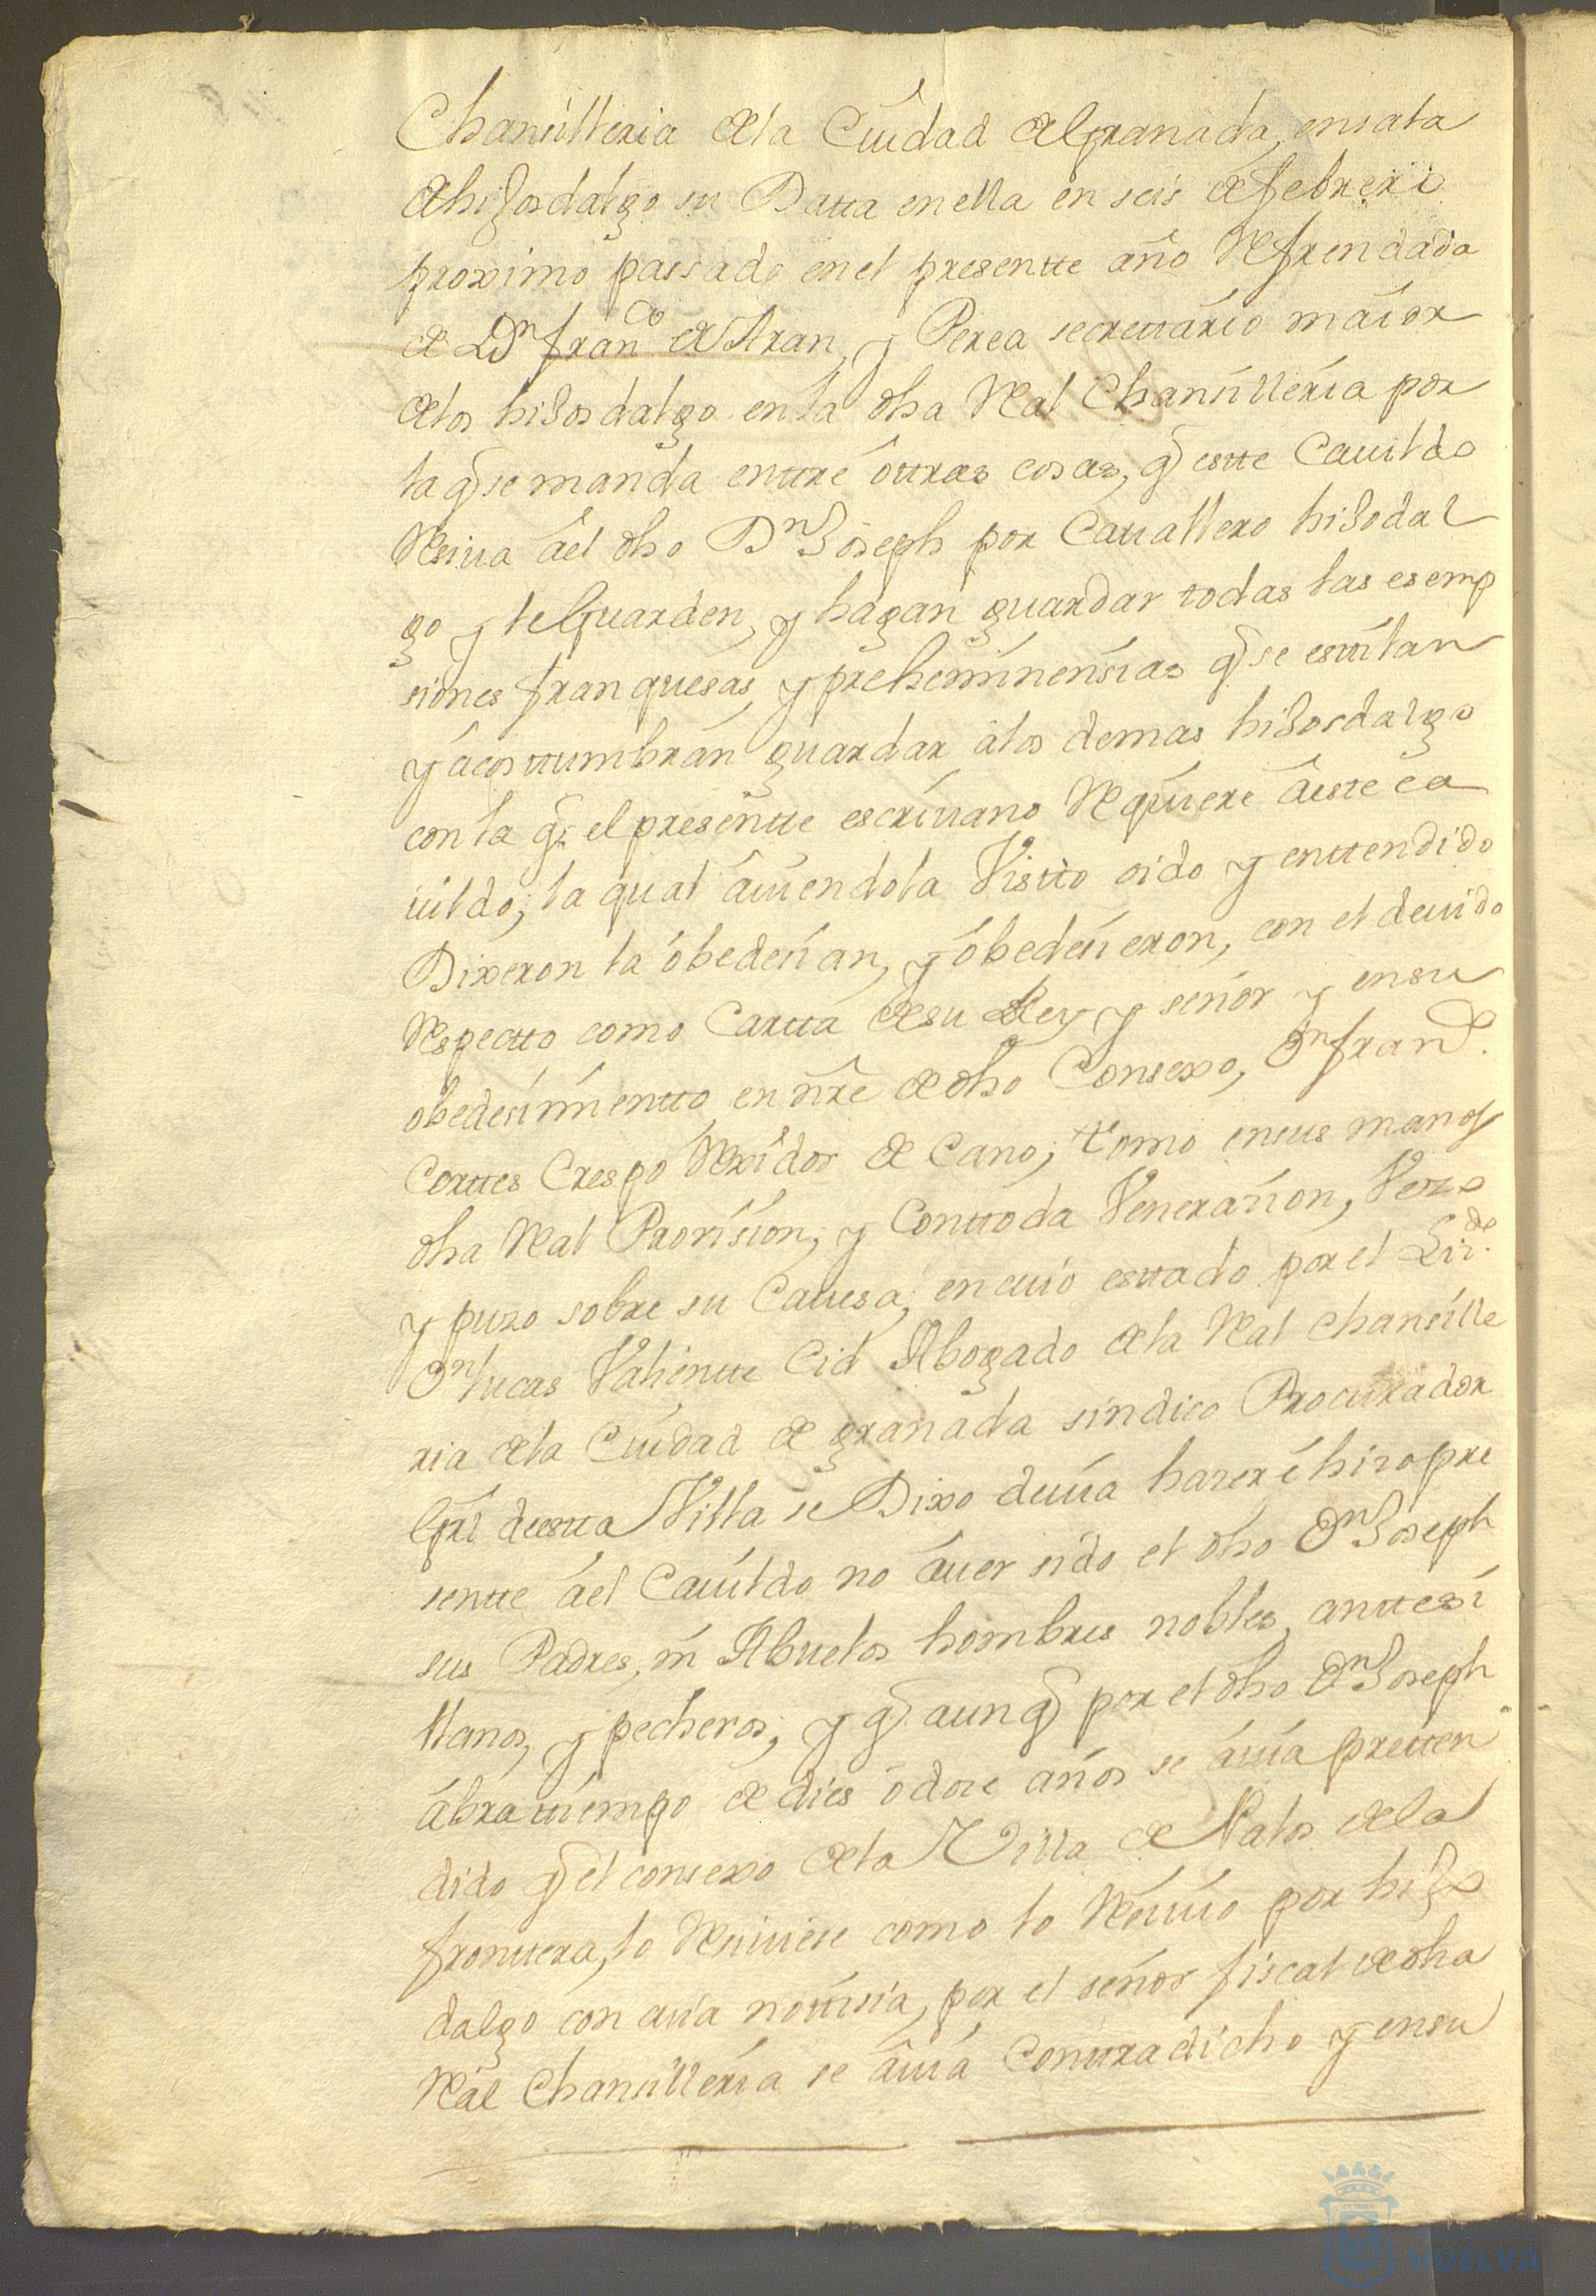 Chansilleria de la Ciudad de Granada, en sala
de hijosdalgo su Datta en ella en seis de febrero
proximo passado en el presentte año Refrendada
de Dn franco de Aran, y Perea secrettario maior
de los hijosdalgo en la dha Real Chansilleria por
la q̃ se manda enttre ôttras cosas, q̃ estte Cauildo
Resiua âel dho Dn Joseph por Cauallero hijodal
go y le Guarden, y hagan guardar todas las esemp
siones franquesas, y preheminensias q̃ se estilan
y acosttumbran guardar âlos demas hijosdalgo
con la q̃ el presentte escriuano Requiere âeste ca
uildo, la qual âuiendola Vistto oido y enttendido
Dixeron la obedecian, y obedecieron, con el deuido
Respectto como Cartta de su Rey y señor y en su
obedesimientto en nr̃e de dho Consexo, Dn franco.
Corttes Crespo Rexidor de Cano; tomo en sus manos
dha Real Provision, y Con ttoda Veneracion, Vezo
y puzo sobre su Cauesa; en cuio esttado por el Licdo.
Dn Lucas Valientte Cid Abogado de la Real Chansille
ria de la Ciudad de granada sindico Procurador
Gral de estta Villa se Dixo deuia hazer é hizo pre
sentte âel Cauildo no âuer sido el dho Dn Joseph
sus Padres, ni Abuelos hombres nobles, anttes si
llanos, y pecheros; y q̃ aunq̃ por el dho Dn Joseph
âbra tiempo de dies ô dose años se âuia pretten
dido q̃ el consexo de la Villa de Palos de la
fronttera, lo Resiuiese como lo Resiuio por hijo
dalgo con cuia nottisia, por el señor fiscal de dha
Real Chansilleria se âuia Conttradicho y en su
HUELVA